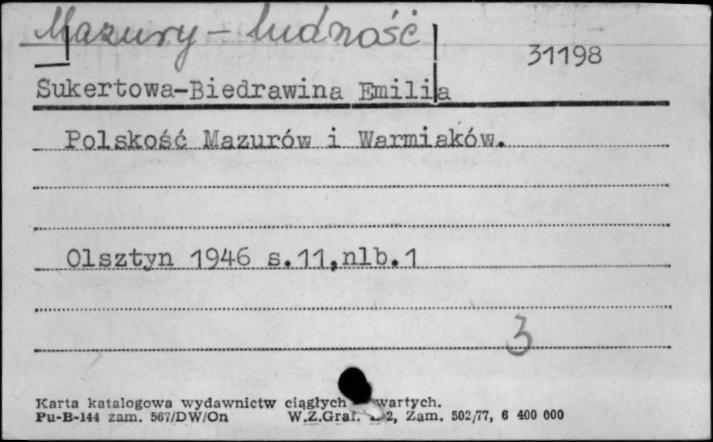 Mazury - ludność
31198
Sukertowa-Biedrawina Emilia
Polskość Mazurów i Warmiaków.
Olsztyn 1946 s.11,nlb.1
3
Karta katalogowa wydawnictw ciągłych wartych.
Pu-B-144 zam. 567/DW/On W.Z.Graf. 2, Zam. 502/77, 6 400 000